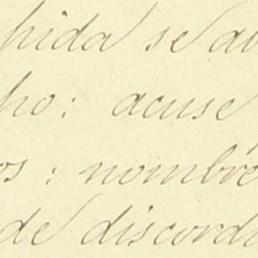 hida se ab
ho: acuse
os: nombre
de discordi